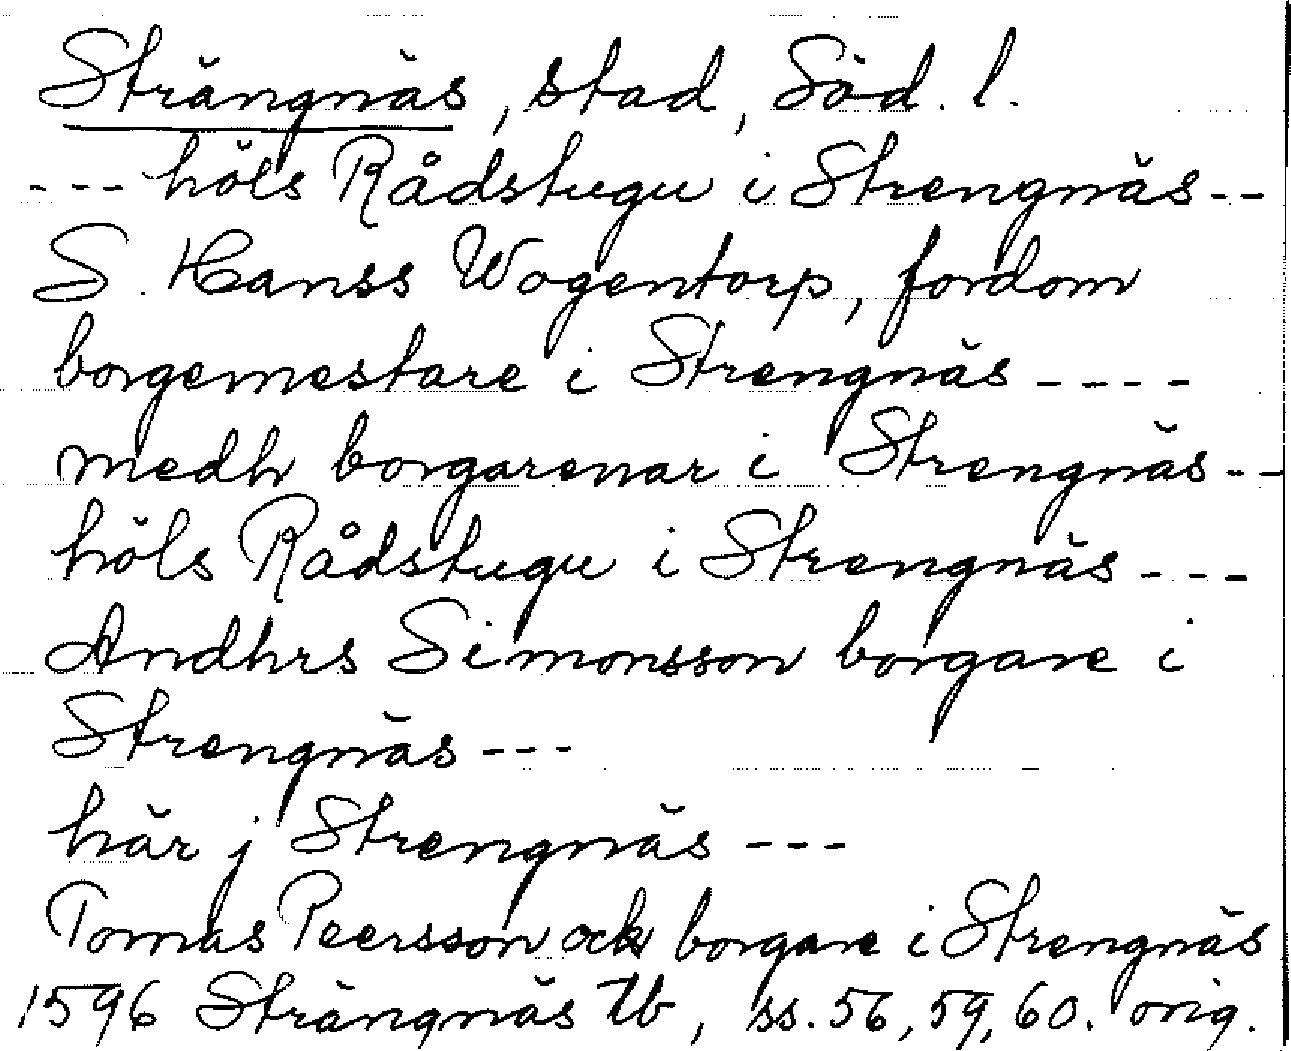 Strängnäs, stad, Söd. l.
--- höls Rådstugu i Strengnäs--
S. Hanss Wogentorp, fordom
borgemestare i Strengnäs----
medh borgarenar i Strengnäs--
höls Rådstugu i Strengnäs---
Andhrs Simonsson borgare i
Strengnäs---
här j Strengnäs---
Tomas Peersson ock borgare i Strengnäs
1596 Strängnäs tb, ss. 56, 59, 60. orig.